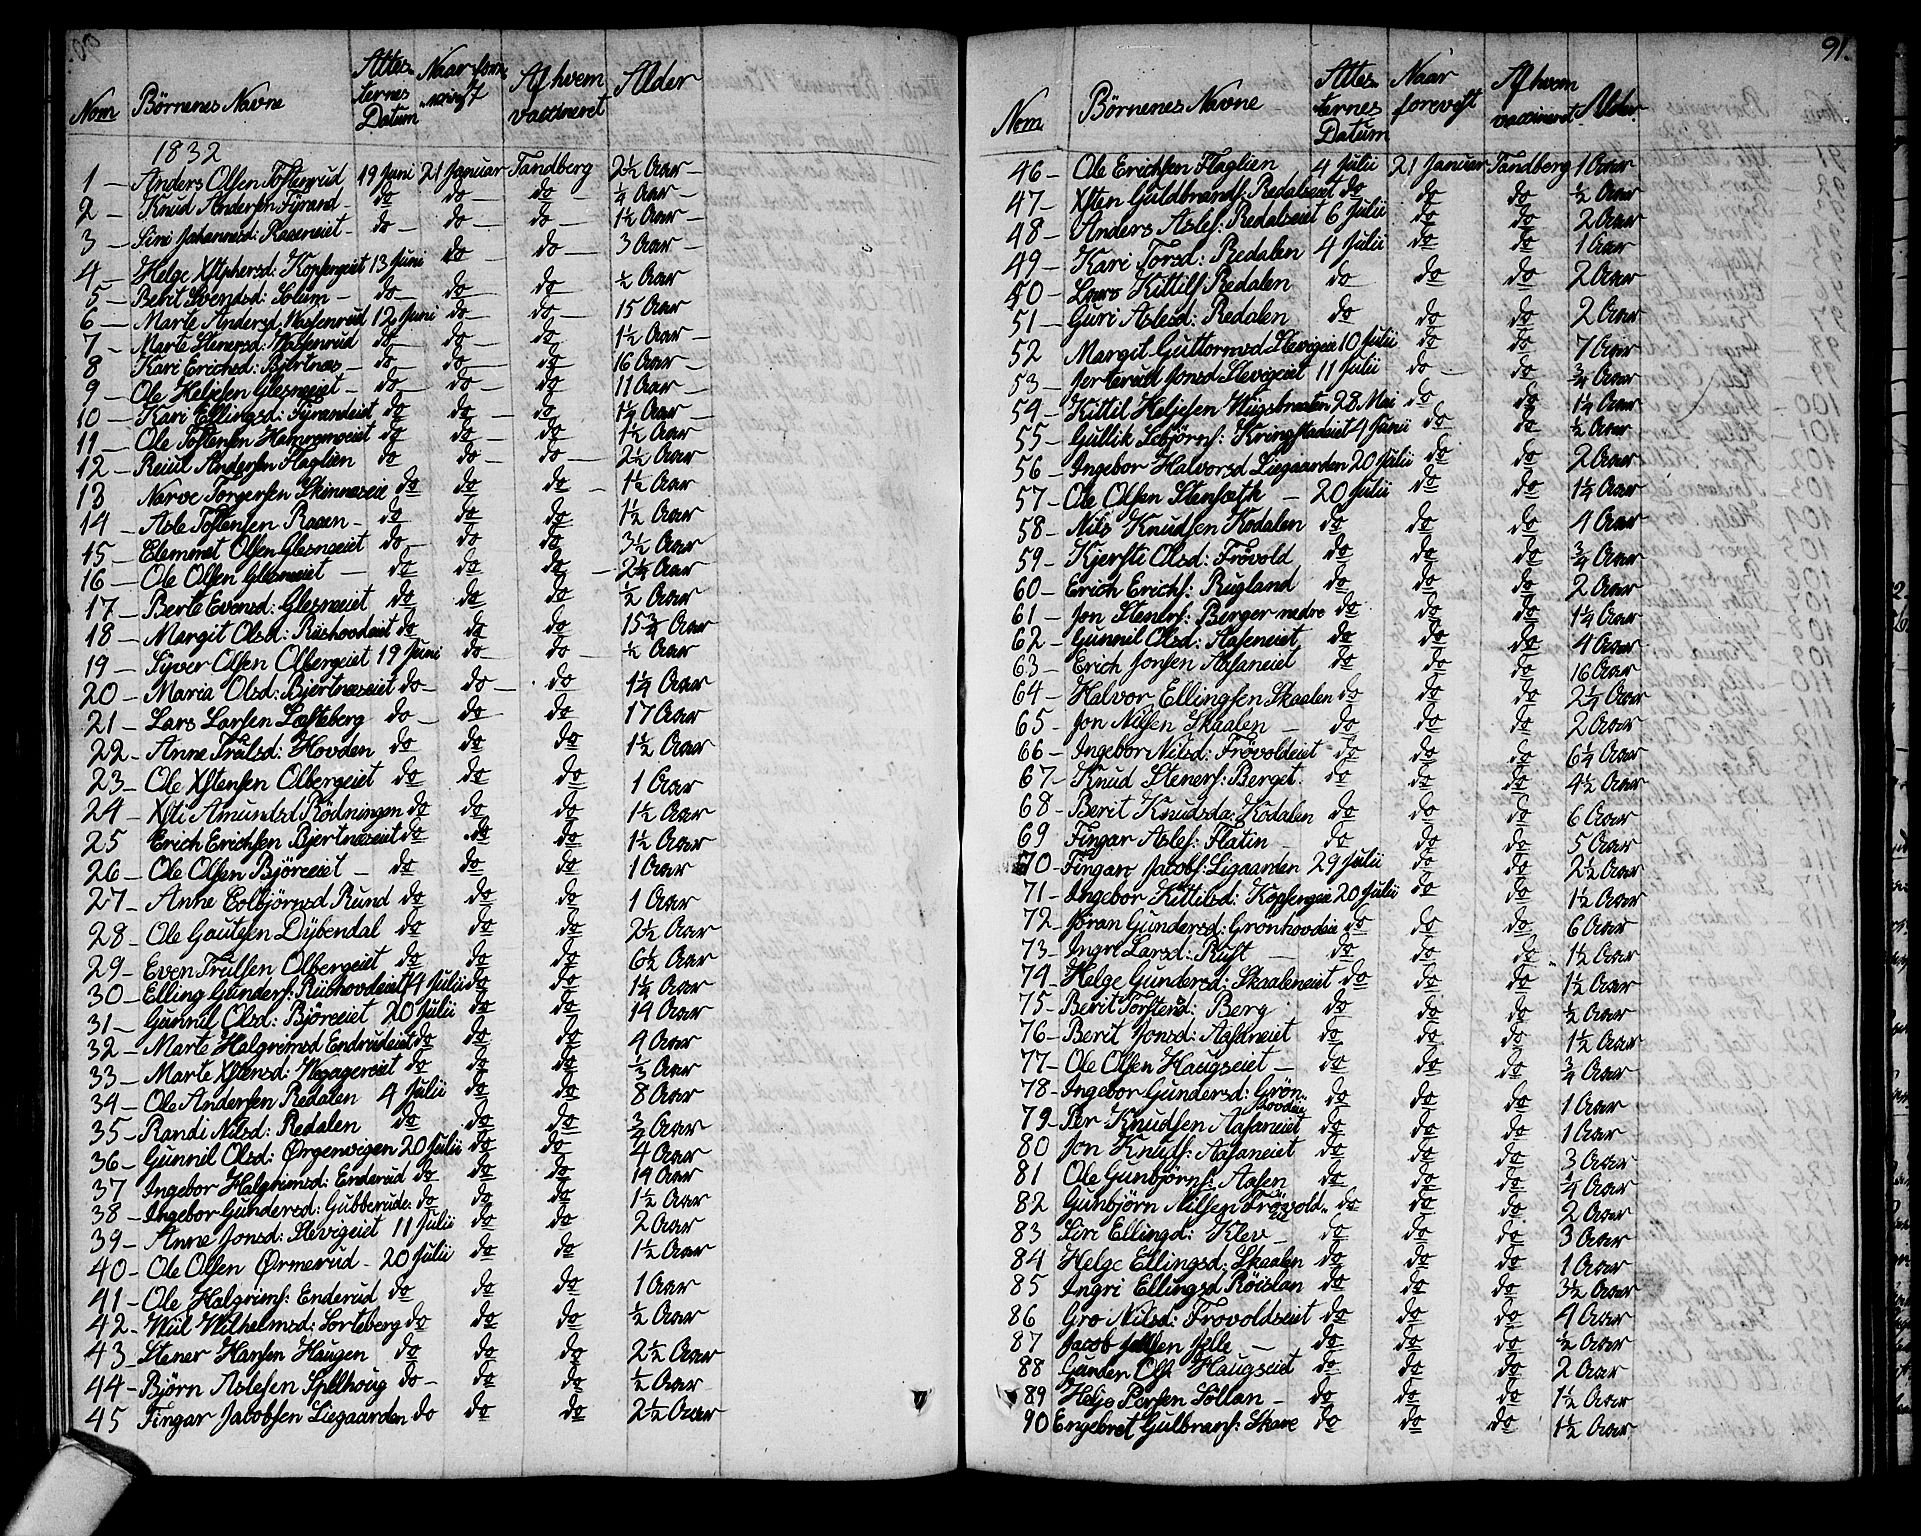 90.
Nom Børnenes Navne Attesternes Datum Naar forevist Af hvem vaccineret Alder
1832
1 — Anders Olsen Tostenrud 19 Juni 21 Januar Tandberg 2½ Aar
2 — Knud Andersen Fyrand — do do — do — ¼ Aar —
3 — Siri Johannesd: Raaeneiet — do — do — do — 1½ Aar —
4 — Helge Xstphersd: Kopsengeiet 13 Juni do — do — 3 Aar —
5 — Berit Svendsd: Solum — do — do — do — ½ Aar
6 — Marte Andersd: Wasenrud 12 Juni do — do — 15 Aar
7 — Marte Stenersd: Wasenrud do — do do 1½ Aar —
8 Kari Erichsd: Bjertnæs — do — do — do 16 Aar —
9 — Ole Heljesen Glesneeiet — do — do — do 11 Aar —
10 — Kari Ellingsd: Fyrandeiet do do — do 1¼ Aar —
11 — Ole Tostensen Hamremoeiet do do — do 1½ Aar
12 — Reiul Andersen Flaglien do do — do — 2½ Aar
13 Narve Torgersen Skinneseie do do do — 1½ Aar
14 — Asle Tostensen Raaen — do do do 1½ Aar
15 — Elemmet Olsen Glesneeiet do — do do 3½ Aar
16 — Ole Olsen Glesneeiet — do do do — 2¼ Aar
17 — Berte Evensd: Glesneeiet do do do ½ Aar
18 — Margit Olsd: Rüshovdeiet do do do 15¾ Aar
19 — Syver Olsen Olbergeiet 19 Juni do — do — ½ Aar
20 — Maria Olsd: Bjertnæseiet do — do — do 1¼ Aar
21 — Lars Larsen Lofteberg do — do — do 17 Aar
22 — Anne Trulsd: Hovden do do do 1½ Aar
23 — Ole Xstensen Olbergeiet do do do 1 Aar
24 — Xsti Amundsd Rödningen do do do 1½ Aar
25 Erich Erichsen Bjertnæseiet do do do 1½ Aar
26 — Ole Olsen Björeeiet — do do do 1 Aar
27 — Anne Eolbjörnsd Rund do do do 1 Aar
28 — Ole Goutesen Dybendal do do do 2½ Aar
29 — Even Trulsen Olbergeiet do do do 6½ Aar
30 — Elling Gunders: Rüshovdeiet 4 Julii do do 1½ Aar
31 — Gunnil Olsd: Björeeiet 20 Julii do do 14 Aar
32 — Marte Halgrimsd Endrudeiet do do do 4 Aar
33 — Marte Xstensd: Wegagereiet do do do ⅓ Aar
34 — Ole Andersen Redalen 4 Julii do do 8 Aar
35 — Randi Nilsd: Redalen do do do ¾ Aar
36 — Gunnil Olsd: Ørgenvigen 20 Julii do do 4 Aar
37 Ingebor Halgrimsd: Enderud do do do 14 Aar
38 — Ingebor Gundersd: Gubberude: do do do 1½ Aar
39 — Anne Jonsd: Slevigeiet 11 Julii do do 2 Aar
40 — Ole Olsen Ørmerud — 20 Julii do do 1½ Aar
41 — Ole Halgrims: Enderud do do do 1 Aar
42 — Wiil Wilhelmsd: Sorteberg do do do ½ Aar
43 — Stener Hansen Haugen do do do 2½ Aar
44 — Björn Aslesen Spelhoug do — do do ½ Aar
45 Fingar Jacobsen Liegaarden do do do 2½ Aar
91.
Nom Børnenes Navne Attesternes Datum Naar forevist Af hvem vaccineret Alder
46 — Ole Erichsen Flaglien 4 Julii 21 Januar Tandberg 1 Aar
47 — Xsten Guldbrands: Redalseiet do do do ½ Aar
48 — Anders Asles: Redalseiet 6 Julii do do 2 Aar
49 — Kari Torsd: Redalen 4 Julii do do 1 Aar
50 — Lars Kittils Redalen do do do 2 Aar
51 — Guri Aslesd: Redalen do do do 2 Aar
52 Margit Guttormsd Slevigeie 10 Julii do do 7 Aar
53 — Jerterud Jonsd Slevigeiet 11 Julii do do ¾ Aar
54 — Kittil Heljesen Wügsbraaten 28. Mai do do 1¼ Aar
55 — Gullik Sebjörns: Kringstadeiet 4 Junii do do ½ Aar
56 — Ingebor Halvorsd Liegaarden 20 Julii do do 2 Aar
57 — Ole Olsen Stensæth — 20 Julii do do 1¼ Aar
58 — Nils Knudsen Kodalen do do do 4 Aar
59 — Kjersti Olsd: Frövold do do do ¾ Aar
60 — Erich Erichs: Rugland do do do 2 Aar
61 — Jon Steners: Berger nedre do do do 1¼ Aar
62 — Gunnil Olsd: Aaseneiet do do do 4 Aar
63 — Erich Jonsen Aasaneiet do do do 16 Aar
64 — Halvor Ellingsen Skaalen do do do 2¼ Aar
65 — Jon Nilsen Skaalen — do do do 2 Aar
66 — Ingebor Nilsd: Frövoldeiet do do do 6¼ Aar
67 — Knud Steners: Berget. do do do 4½ Aar
68 — Berit Knudsda: Kodalen do do do 6 Aar
69 Fingar Asles: Flatin — do do do 5 Aar
70 — Fingar Jacobs: Ligaarden 29 Julii do do 2½ Aar
71 — Ingebor Kittilsd: Kopsengeie 20 Julii do do 1½ Aar
72 — Jöran Gundersd: Gronhovdeie do do do 6 Aar
73 — Ingri Larsd: Rust — do do do 1½ Aar
74 — Helge Gundersd: Skaaleneiet do do do 1½ Aar
75 — Berit Torstensd: Berg do do do ½ Aar
76 — Berit Jonsd: Aasaneiet do do do 1½ Aar
77 — Ole Olsen Haugseiet — do do do ¾ Aar
78 — Ingebor Gundersd: Grönhovdeie do do do 1 Aar
79 — Per Knudsen Aasaneiet do do do 1 Aar
80 Jon Knuts: Aasaneiet do do do 3 Aar
81 Ole Gunbjörns: Aasen do do do ¾ Aar
82 Gunbjörn Nilsen Frövoldeie do do do 2 Aar
83 Siri Ellingd: Klev — do do do 3 Aar
84 Helge Ellingsd: Skaalen do do do 1 Aar
85 Ingri Ellingsd Röislan do do do 3½ Aar
86 Gro Nilsd: Frovoldseiet do do do 4 Aar
87 Jacob Jellsen Jelle — do do do ½ Aar
88 Gunder Ols: Haugseiet do do do 2 Aar
89 Helje Persen Söllan — do do do 1½ Aar
90 Engebret Gulbrans: Skare do do do 1½ Aar